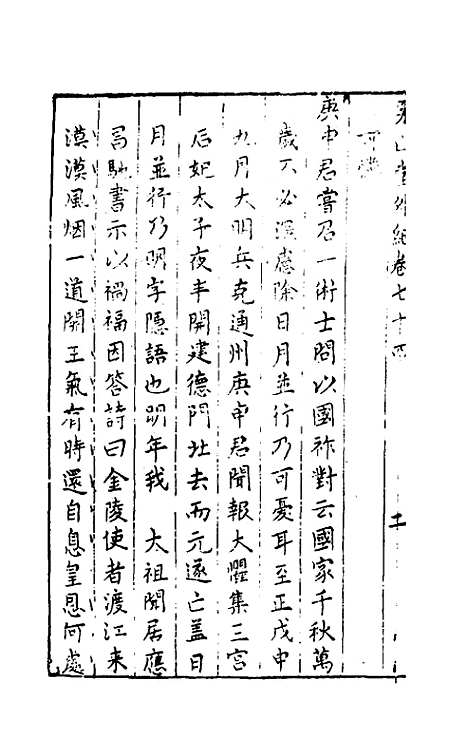 堯山堂外紀卷七十四
庚申君嘗召一術士問以國祚對云國家千秋萬
歲不必深慮除日月並行乃可憂耳至正戊申
九月大明兵克通州庚申君聞報大懼集三宮
后妃太子夜半開建德門北去而元遂亡盖日
月並行乃明字隱語也明年我 太祖聞居應
昌馳書示以禍福因答詩曰金陵使者渡江来
漠漠風烟一道開王氣有時還自息皇恩何處